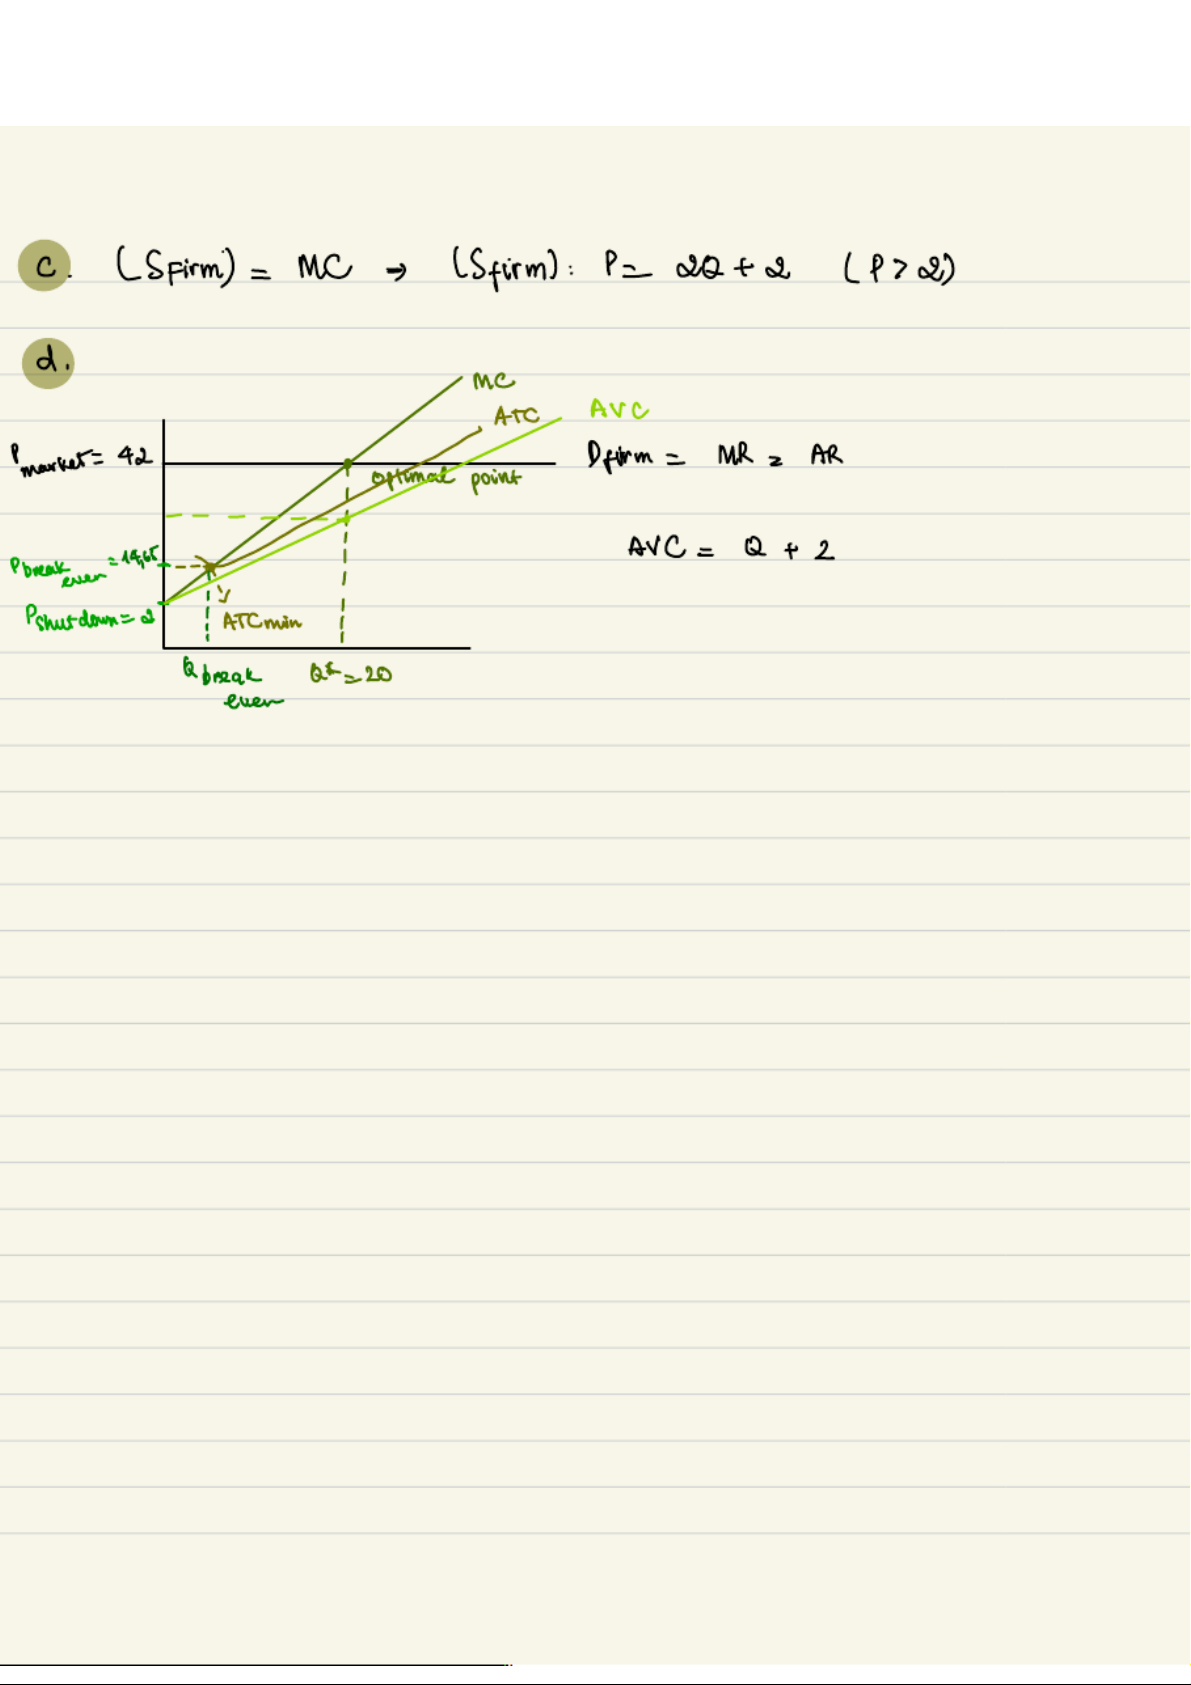 c. (SFirm) = MC → (Sfirm): P = 2Q + 2 (P > 2)
d.
MC
ATC
AVC
Pmarket = 42
Dfirm = MR = AR
optimal point
AVC = Q + 2
Pbreak even = 14,65
Pshutdown = 2
ATCmin
Qbreak even
Q* = 20